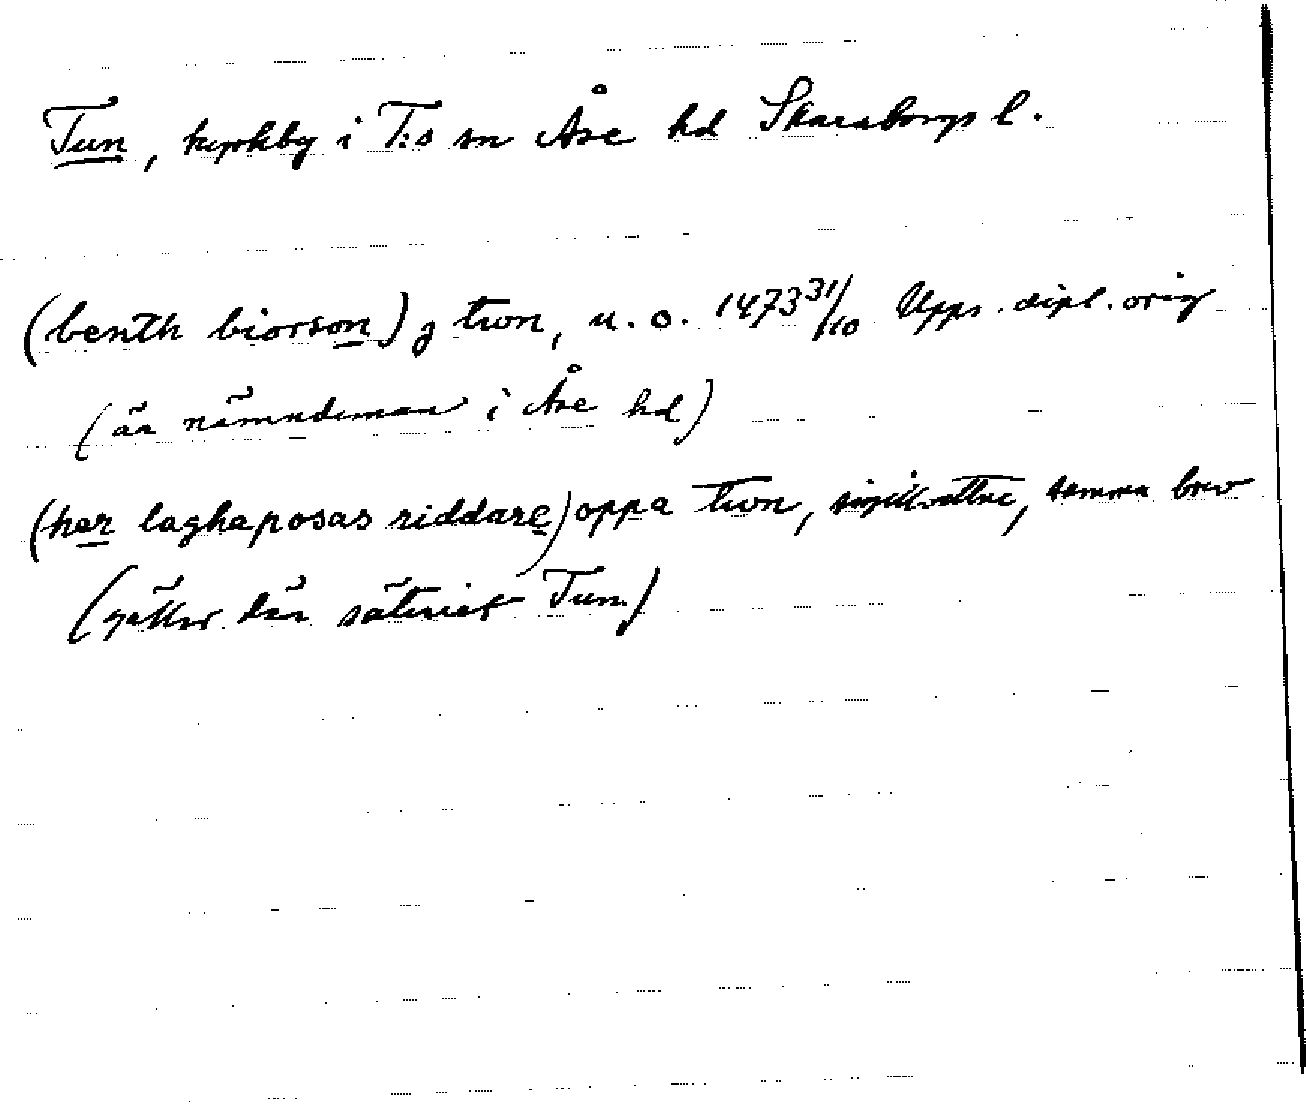 Tun, kyrkby i T:s sn Åse hd Skaraborgs l.
(benth biorson) j twn, u.o. 1473 31/10 Upps. dipl. orig
(är nämndeman i Åse hd)
(her laghaposas riddare) oppa twn, sigillvittne, samma brev
(gäller där säteriet Tun)